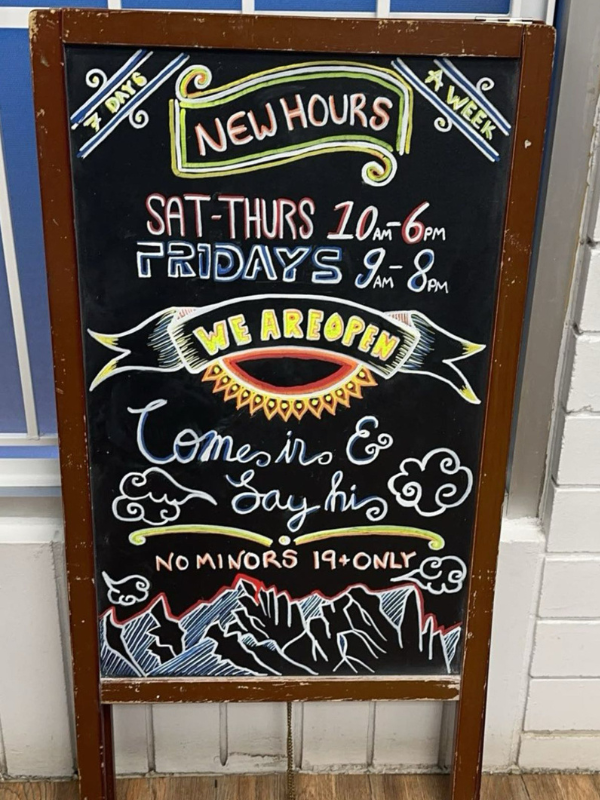 7 DAYS
A WEEK
NEW HOURS
SAT-THURS 10AM-6PM
FRIDAYS 9AM-8PM
WE ARE OPEN
Come in &
Say hi
NO MINORS 19+ ONLY